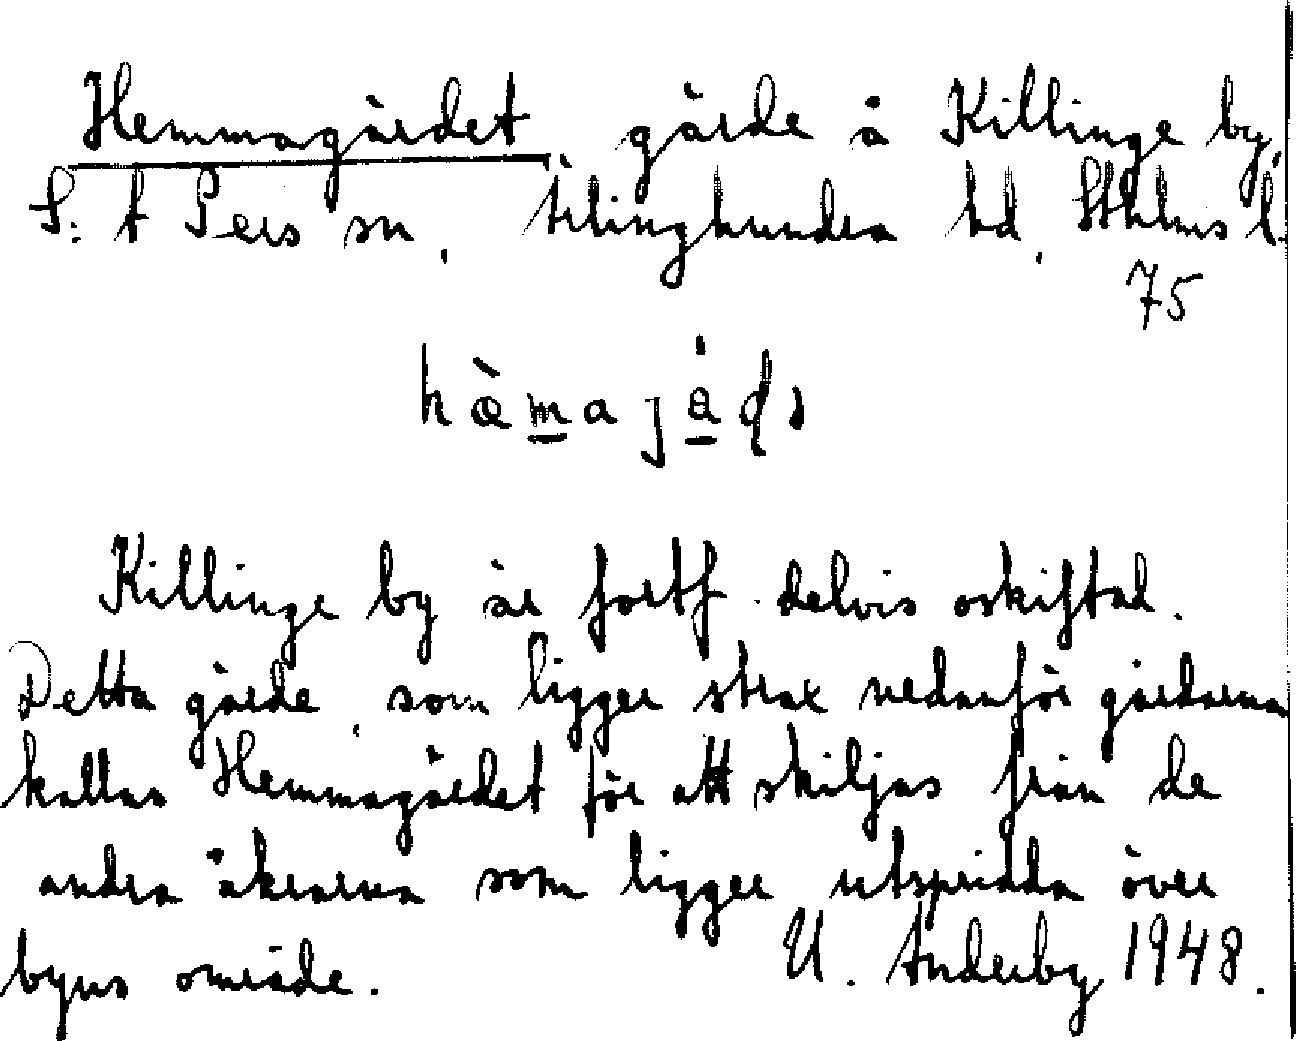 Hemmagärdet gärde å Killinge by,
S:t Pers sn, Ärlinghundra hd, Sthlms l.
75
hæ̀majá̱ḍə
Killinge by är fortf. delvis oskiftad.
Detta gärde, som ligger strax nedanför gårdarna
kallas Hemmagärdet för att skiljas från de
andra åkrarna som ligger utspridda över
byns område. U. Anderby 1948.